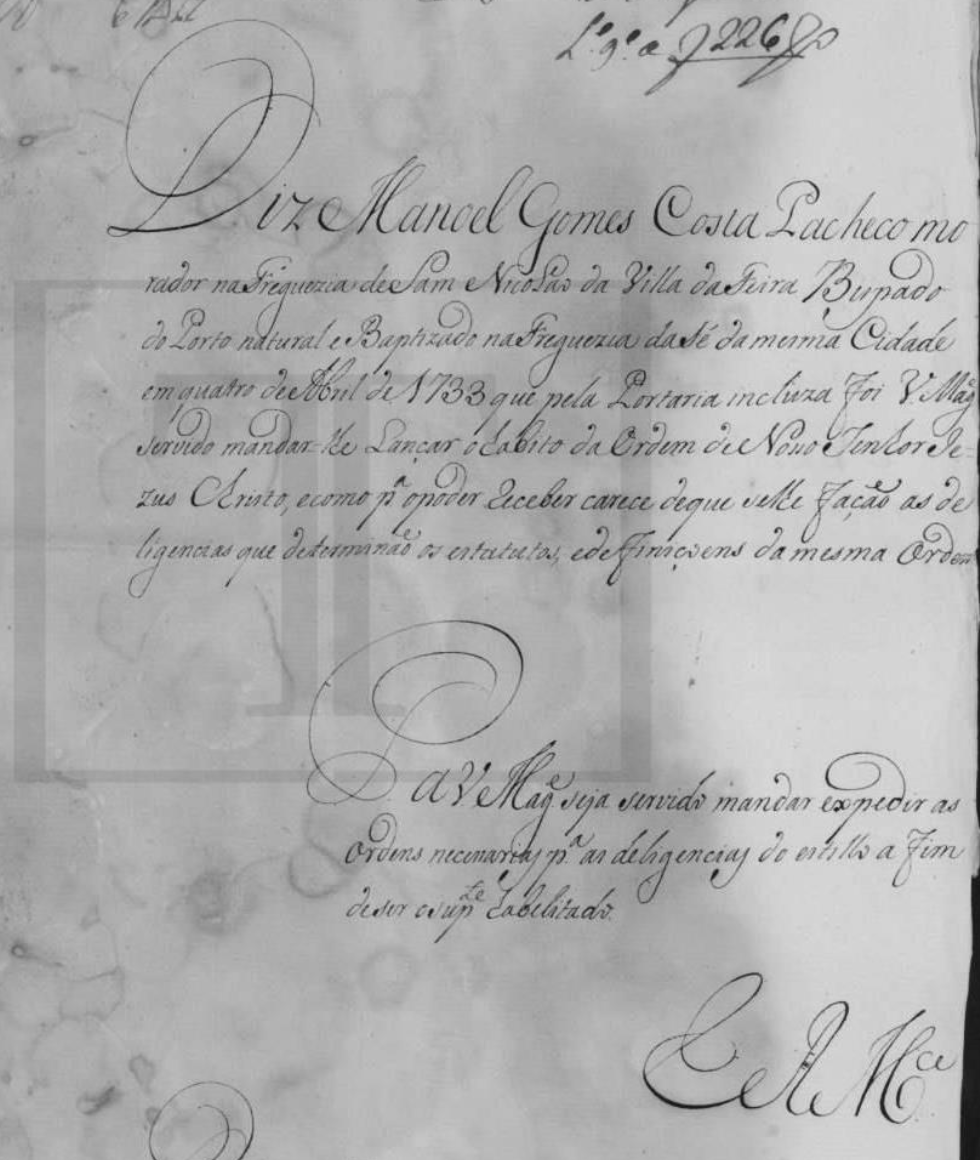 L.º 9.º a f 226
Diz Manoel Gomes Costa Pacheco mo
rador na Freguezia de Sam Nicoláo da Villa da Feira Bispado
do Porto natural e Baptizado na Freguezia da Sé da mesma Cidade
em quatro de Abril de 1733 que pela Portaria incluza foi V. Mag.
servido mandar-lhe Lançar o habito da Ordem de Nosso Senhor Je-
zus Christo, e como p.ª o poder Receber carece de que se lhe fação as de
ligencias que determinão os estatutos, e deffiniçoens da mesma Ordem
P. A V. Mag.e seja servido mandar expedir as
Ordens necessarias p.ª as deligencias do estillo a fim
de ser o sup.te habelitado.
E R M.ce